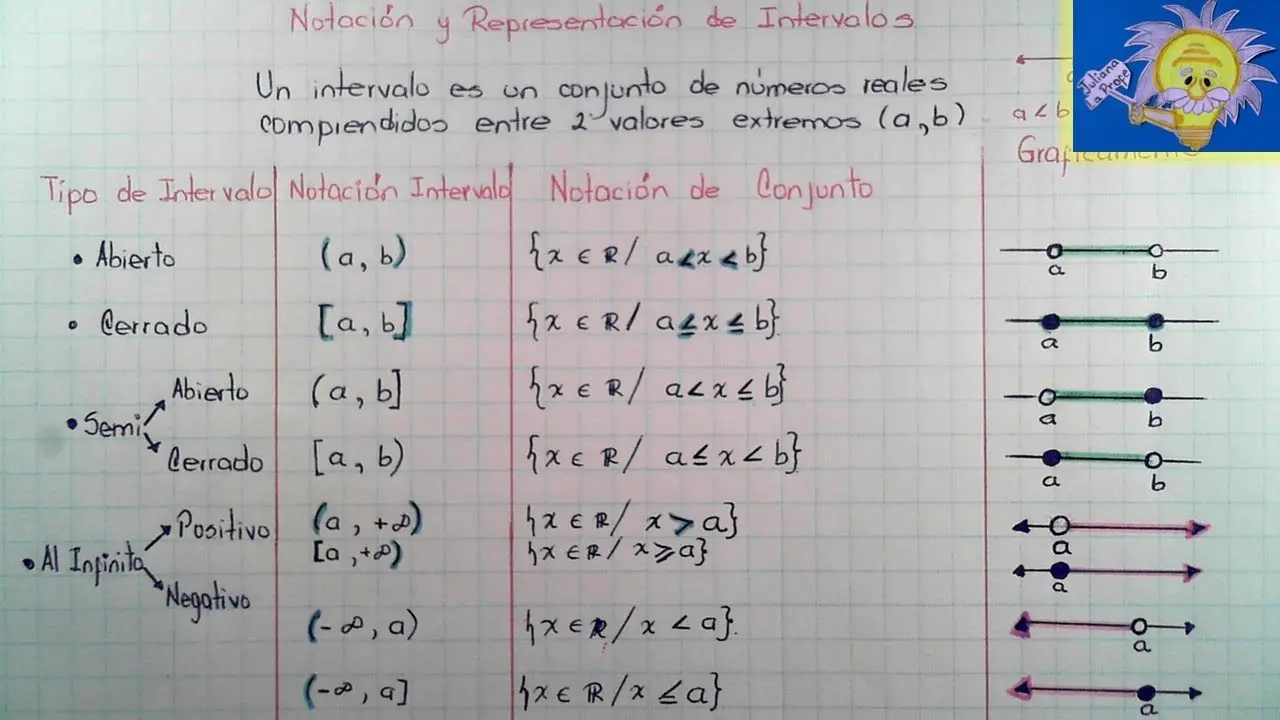 Notación y Representación de Intervalos
Un intervalo es un conjunto de números reales
comprendidos entre 2 valores extremos (a,b)
a < b
Juliana
La Profe
Gráficamente
Tipo de Intervalo Notación Intervalo Notación de Conjunto
• Abierto (a, b) {x ∈ ℝ/ a<x<b} a b
• Cerrado [a, b] {x ∈ ℝ/ a≤x≤b} a b
• Semi Abierto (a, b] {x ∈ ℝ/ a<x≤b} a b
Cerrado [a, b) {x ∈ ℝ/ a≤x<b} a b
• Al Infinito Positivo (a, +∞) {x ∈ ℝ/ x>a} a
[a, +∞) {x ∈ ℝ/ x≥a} a
Negativo (-∞, a) {x ∈ ℝ/x < a}. a
(-∞, a] {x ∈ ℝ/x ≤ a} a